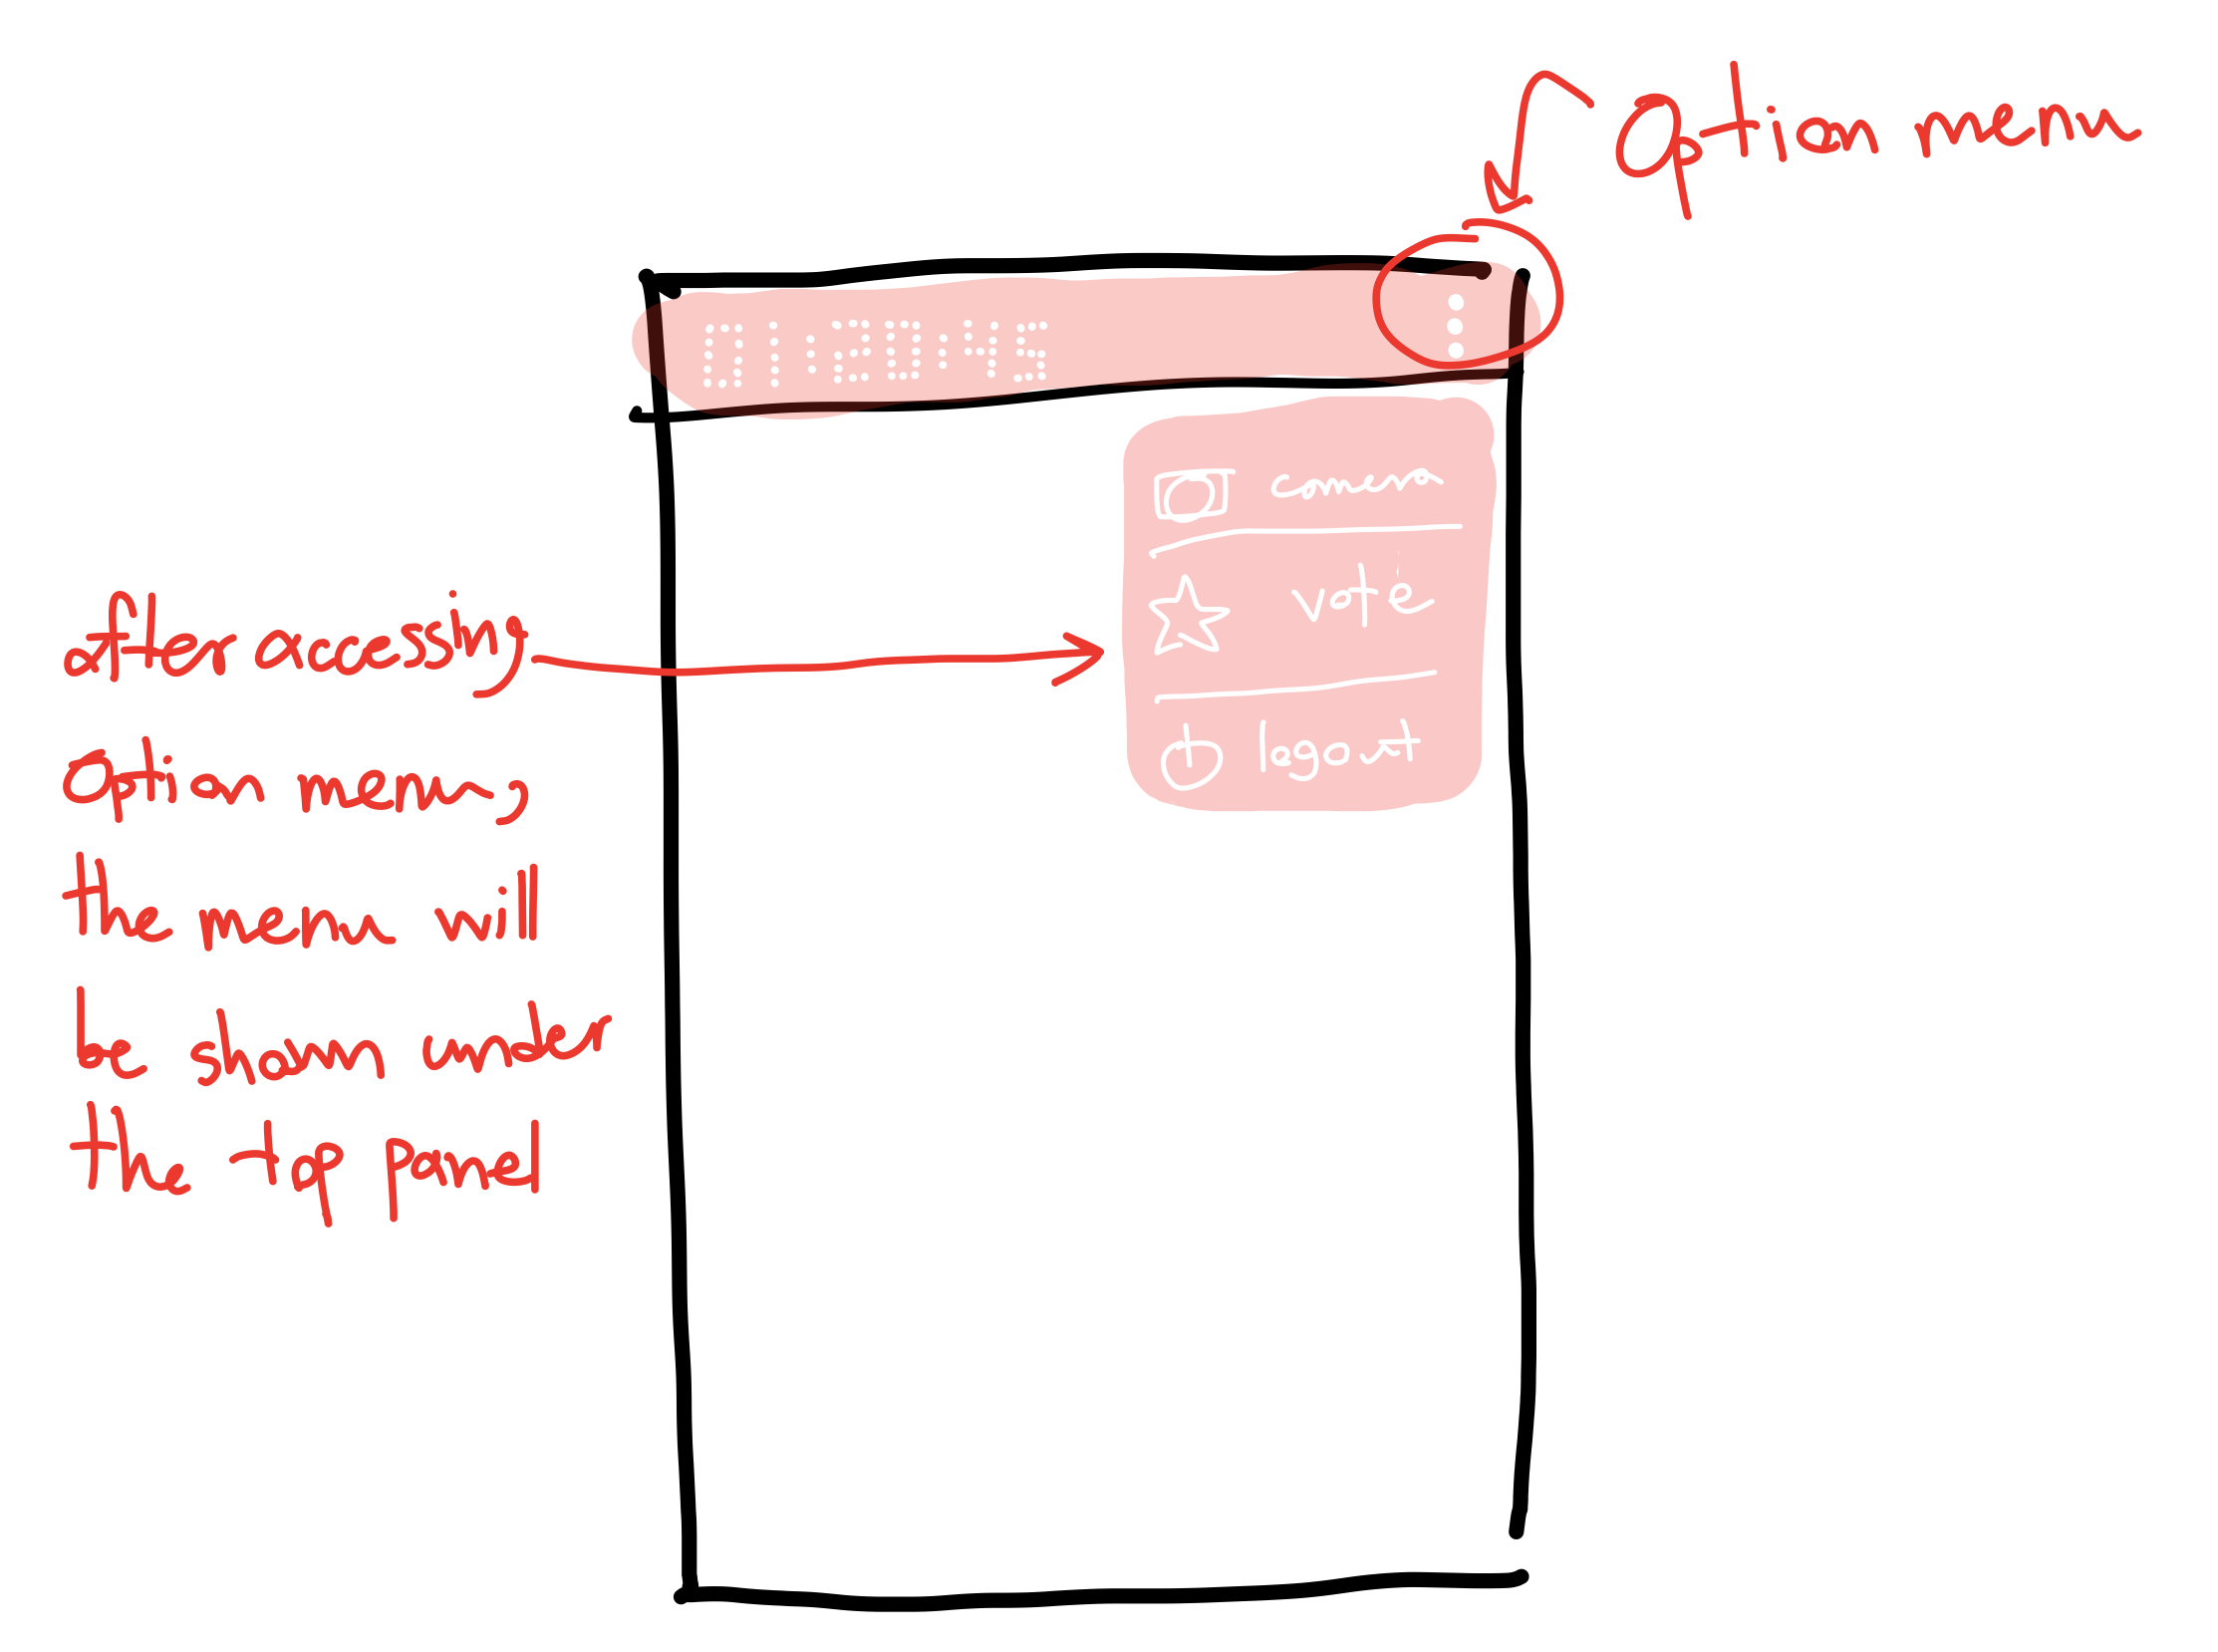 option menu
01:20:45
camera
vote
logout
after accessing
option menu,
the menu will
be shown under
the top panel